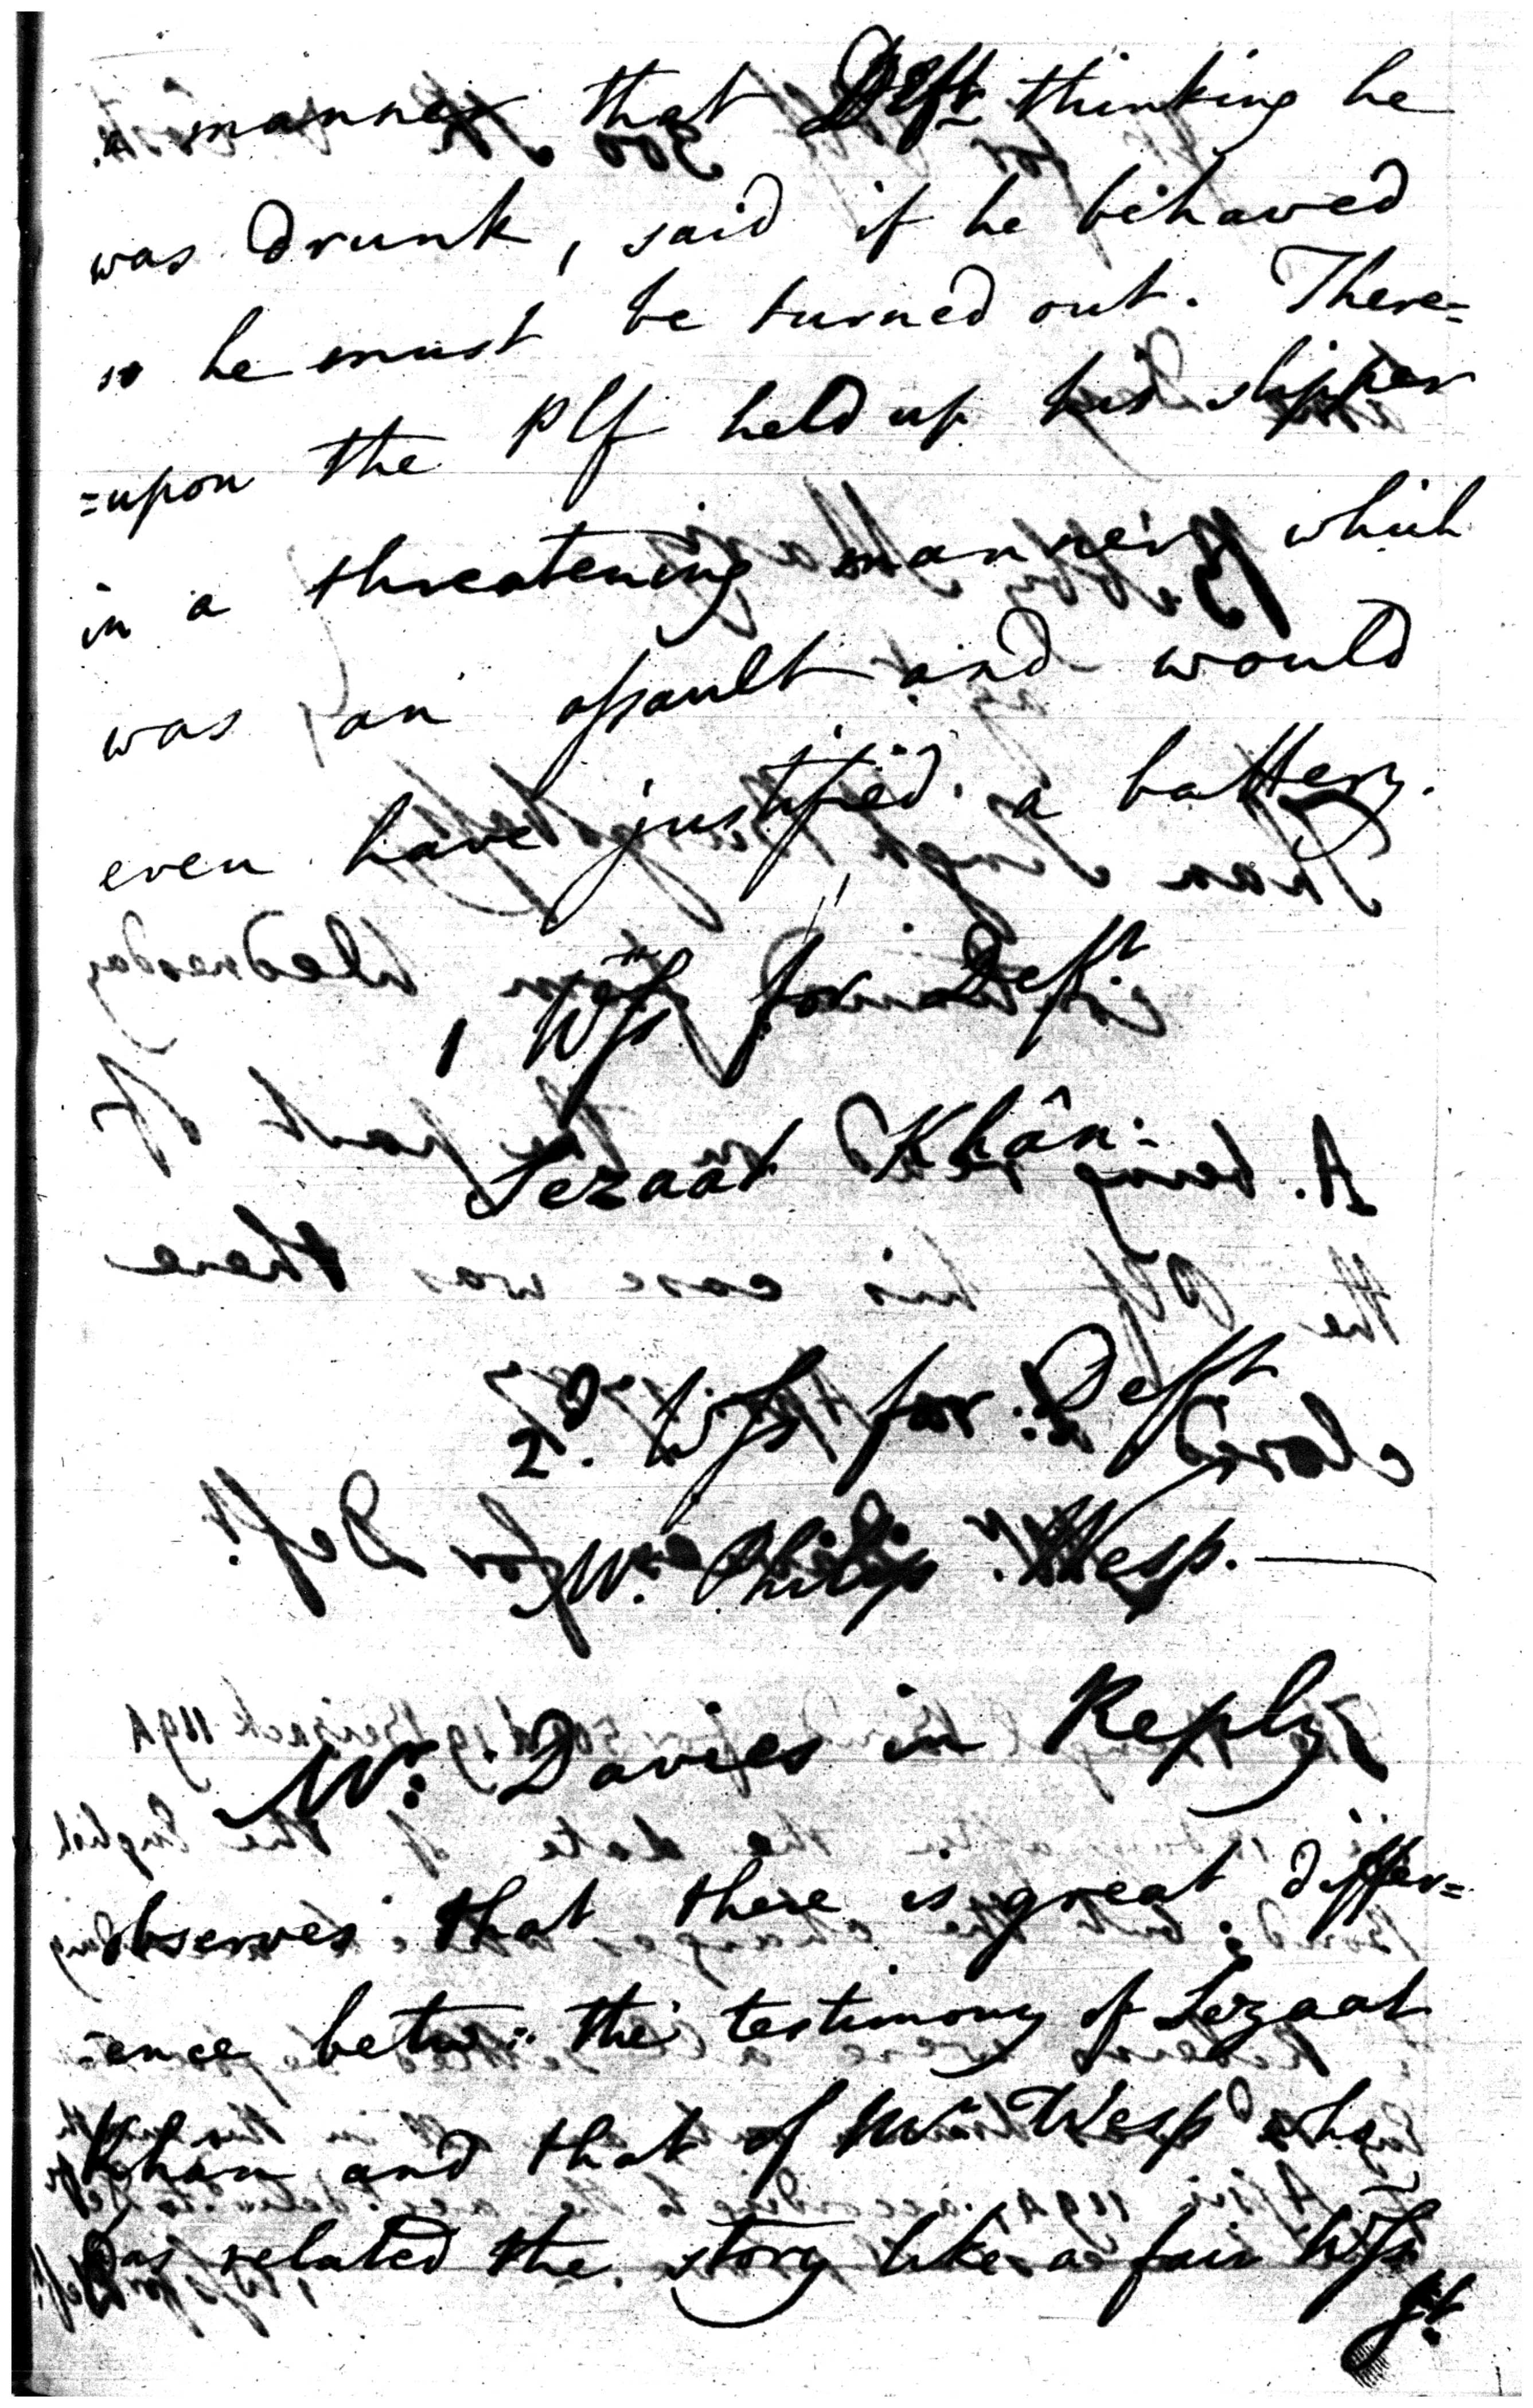 a manner that Deft thinking he
was drunk, said if he behaved
so he must be turned out. There=
=upon the Plf held up his slipper
in a threatening manner which
was an assault and would
even have justified a battery.
1 Wss for Deft
Lezaat Khân.
2d. Wss for Deft
Mr. Philip Wesp.
Mr. Davies in Reply
observes that there is great differ=
=ence betw: the testimony of Lezaat
Khan and that of Mr Wesp who
has related the story like a fair Wss